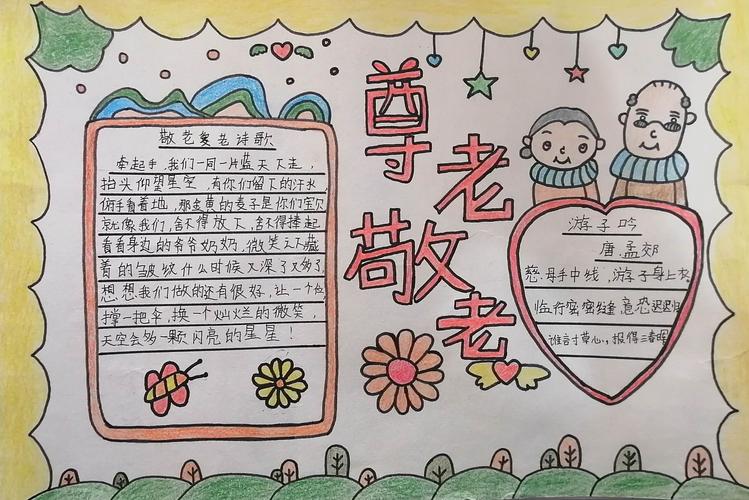 尊老敬老
敬老爱老诗歌
牵起手,我们一同一片蓝天下走,
抬头仰望星空,有你们留下的汗水,
俯手看着地,那金黄的麦子是你们宝贝
就像我们,舍不得放下,舍不得捧起
看看身边的爷爷奶奶,微笑之下藏
着的皱纹什么时候又深了又多了
想想我们做的还有很好,让一个位
撑一把伞,换一个灿烂的微笑,
天空会多一颗闪亮的星星!
游子吟
唐孟郊
慈母手中线,游子身上衣
临行密密缝,意恐迟迟归
谁言寸草心,报得三春晖